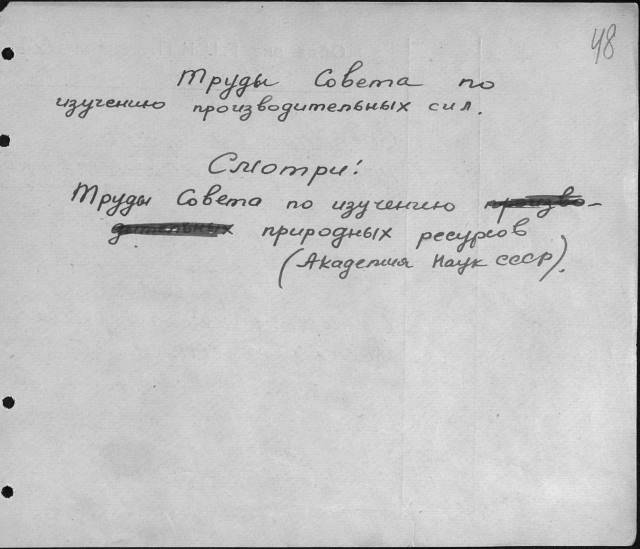 48
Труды Совета по
изучению производительных сил.
Смотри!
Труды Совета по изучению произво-
дительных природных ресурсов
(Академия Наук СССР).